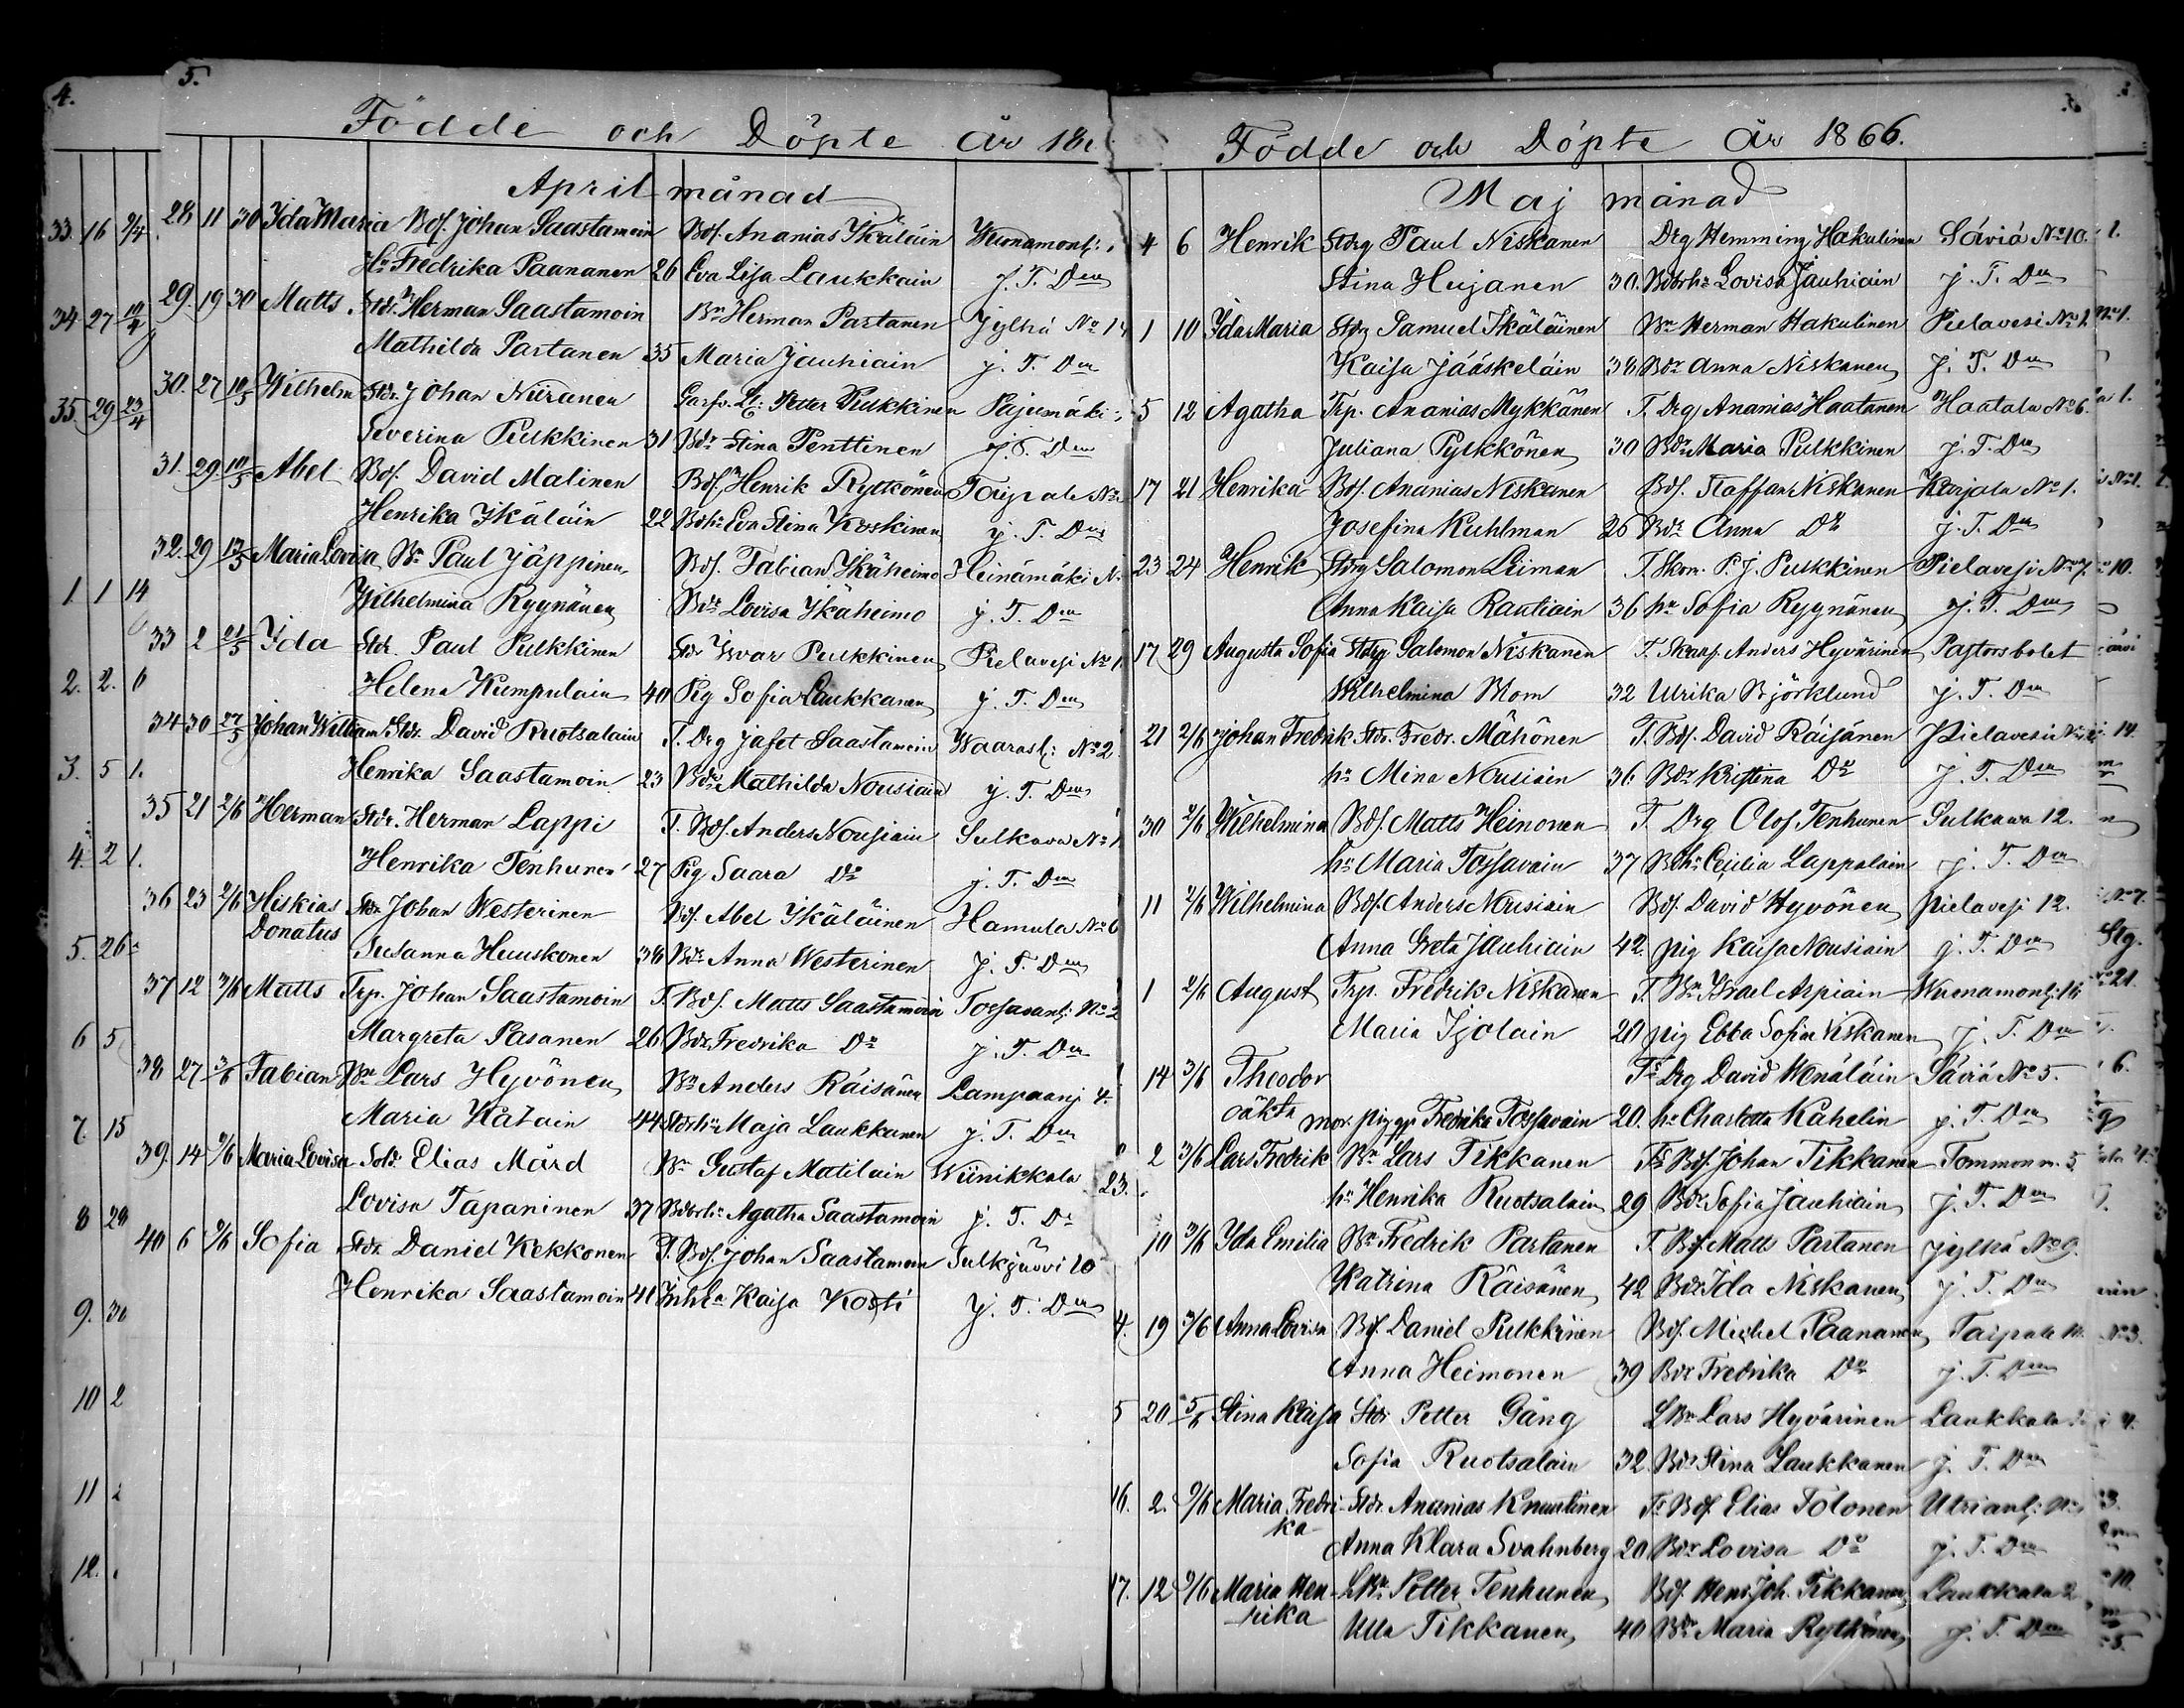 4.
5.
Födde och Döpte år 18
April månad
33. 16 9/4
34. 27 10/4
35. 29 23/4
1. 1 14
2. 2. 6
3. 5 1.
4. 2 1.
5. 26
6 5
7. 15
8 28
9. 30
10 2
11
12.
28 11 30 Ida Maria Bds. Johan Saastamoin Bds. Ananias Ikäläin
Hu Fredrika Paananen 26 Eva Lisa Laukkain j. T. Dm
29. 19 30 Matts Stdr. Herman Saastamoin Bn Herman Partanen Jylhä No 14
Mathilda Partanen 35 Maria Jauhiain j. T. Dm
30. 27 10/5 Wilhelm Stdr. Johan Niiranen Petter Pulkkinen Pajumäki
Severina Pulkkinen 31 Bdr Stina Penttinen j. T. Dm
31. 29 10/5 Abel Bds. David Malinen Bds. Henrik Rytkönen Taipale No
Henrika Ikäläin 22 Bdhu Eva Stina Koskinen j. T. Dm
32. 29 13/5 Maria Lovisa Bn Paul Jäppinen Bds. Fabian Ikäheimo Heinämäki N.
Wilhelmina Ryynänen Bdr Lovisa Ikäheimo j. T. Dm
33 2 21/5 Ida Stdr. Paul Pulkkinen Stdr Ivar Pulkkinen Pielavesi No 1.
Helena Kumpulain 40 Pig Sofia Laukkanen j. T. Dm
34 30 27/5 Johan William Stdr. David Ruotsalain T. Drg Jafet Saastamoin Waarasl: No 2
Henrika Saastamoin 23 Bdr Mathilda Nousiain j. T. Dm
35 21 2/6 Herman Stdr. Herman Lappi T. Bds. Anders Nousiain Sulkava No 1
Henrika Tenhunen 27 Pig Saara Do j. T. Dm
36 23 2/6 Hiskias Stdr Johan Westerinen Bds. Abel Ikäläinen Hamula No 6
Donatus Susanna Huuskonen 38 Bdr Anna Westerinen j. T. Dm
37 12 3/6 Matts Trp. Johan Saastamoin T. Bds. Matts Saastamoin Tossavanl: No 2
Margreta Pasanen 26 Bdr Fredrika Do j. T. Dm
38 27 3/6 Fabian Bn Lars Hyvönen Bn Anders Räisänen Lampaanj 4.
Maria Hatain 44 Stdrhu Maja Laukkanen j. T. Dm
39. 14 9/6 Maria Lovisa Sold. Elias Mård Bn Gustaf Matilain Wiinikkala
Lovisa Tapaninen 37 Bdrhu Agatha Saastamoin j. T. Dm
40 6 9/6 Sofia Stdr Daniel Kekkonen T. Bds. Johan Saastamoin Sulkjärvi 10
Henrika Saastamoin 41 Kaisa Kosti j. T. Dm
Födde och Döpte År 1866.
Maj månad
4 6 Henrik Stdrg Paul Niskanen Drg Hemming Hakulinen Säviä No 10.
Stina Hujanen 30. Bdrhu Lovisa Jauhiain j. T. Dm
1 10 Ida Maria Stdrg Samuel Ikäläinen Bn Herman Hakulinen Pielavesi No 1.
Kaisa Jääskeläin 38 Bdr Anna Niskanen j. T. Dm
5 12 Agatha Trp. Ananias Mykkänen T. Drg Ananias Haatanen Haatala No 6.
Juliana Pylkkönen 30 Bdr Maria Pulkkinen j. T. Dm
17 21 Henrika Bds. Ananias Niskanen Bds. Staffan Niskanen Karjala No 1.
Josefina Kuhlman 26 Bdr Anna Do j. T. Dm
23 24 Henrik Stdrg Salomon Liiman T. Skom. P. J. Pulkkinen Pielavesi No 7.
Anna Kaisa Rautiain 36 hu Sofia Ryynänen j. T. Dm
17 29 Augusta Sofia Stdrg Salomon Niskanen T. Skarf. Anders Hyvärinen Pastorsbolet
Wilhelmina Blom 32 Ulrika Björklund j. T. Dm
21 2/6 Johan Fredrik Stdr. Fredr. Mähönen T. Bds. David Räisänen Pielavesi
hu Mina Nousiain 36. Bdr Kristina Do j. T. Dm
30 2/6 Wilhelmina Bds. Matts Heinonen T. Drg Olof Tenhunen Sulkawa 12.
hu Maria Tossavain 37 Bdhu Cecilia Lappalain j. T. Dm
11 2/6 Wilhelmina Bds. Anders Nousiain Bds. David Hyvönen Pielavesi 12.
Anna Greta Jauhiain 42. pig Kaisa Nousiain j. T. Dm
1 2/6 August Trp. Fredrik Niskanen T. Bn Israel Arpiain Wuonamonl: 16
Maria Tjolain 20 pig Ebba Sofia Niskanen j. T. Dm
14 3/6 Theodor Ts Drg David Wenäläin Säviä No 5.
oäkta mor. pigg Fredrika Tossavain 20. hu Charlotta Kahelin j. T. Dm
2 3/6 Lars Fredrik Bn Lars Tikkanen Ts Bds. Johan Tikkanen Tommonm. 5.
hu Henrika Ruotsalain 29 Bdr Sofia Jauhiain j. T. Dm
10 3/6 Ida Emilia Bn Fredrik Partanen T Bds. Matts Partanen Jylhä No 9.
Katrina Räisänen 42 Bdr Ida Niskanen j. T. Dm
4. 19 3/6 Anna Lovisa Bds. Daniel Pulkkinen Bds. Michel Paananen Taipale
Anna Heimonen 39 Bdr Fredrika Do j. T. Dm
5 20 5/6 Stina Kaisa Stdr Petter Gång LBn Lars Hyvärinen Laukkala
Sofia Ruotsalain 32. Bdr Stina Laukkanen j. T. Dm
16. 2. 9/6 Maria Fredri- Stdr. Ananias Knuutinen Ts Bds Elias Tolonen Utrianl: No
ka Anna Klara Svahnberg 20 Bdr Lovisa Do j. T. Dm
17. 12 9/6 Maria Hen- LBn Petter Tenhunen Bds. Henr Joh. Tikkanen Laukkala 2
rika Ulla Tikkanen 40 Bdr Maria Rytkönen j. T. Dm